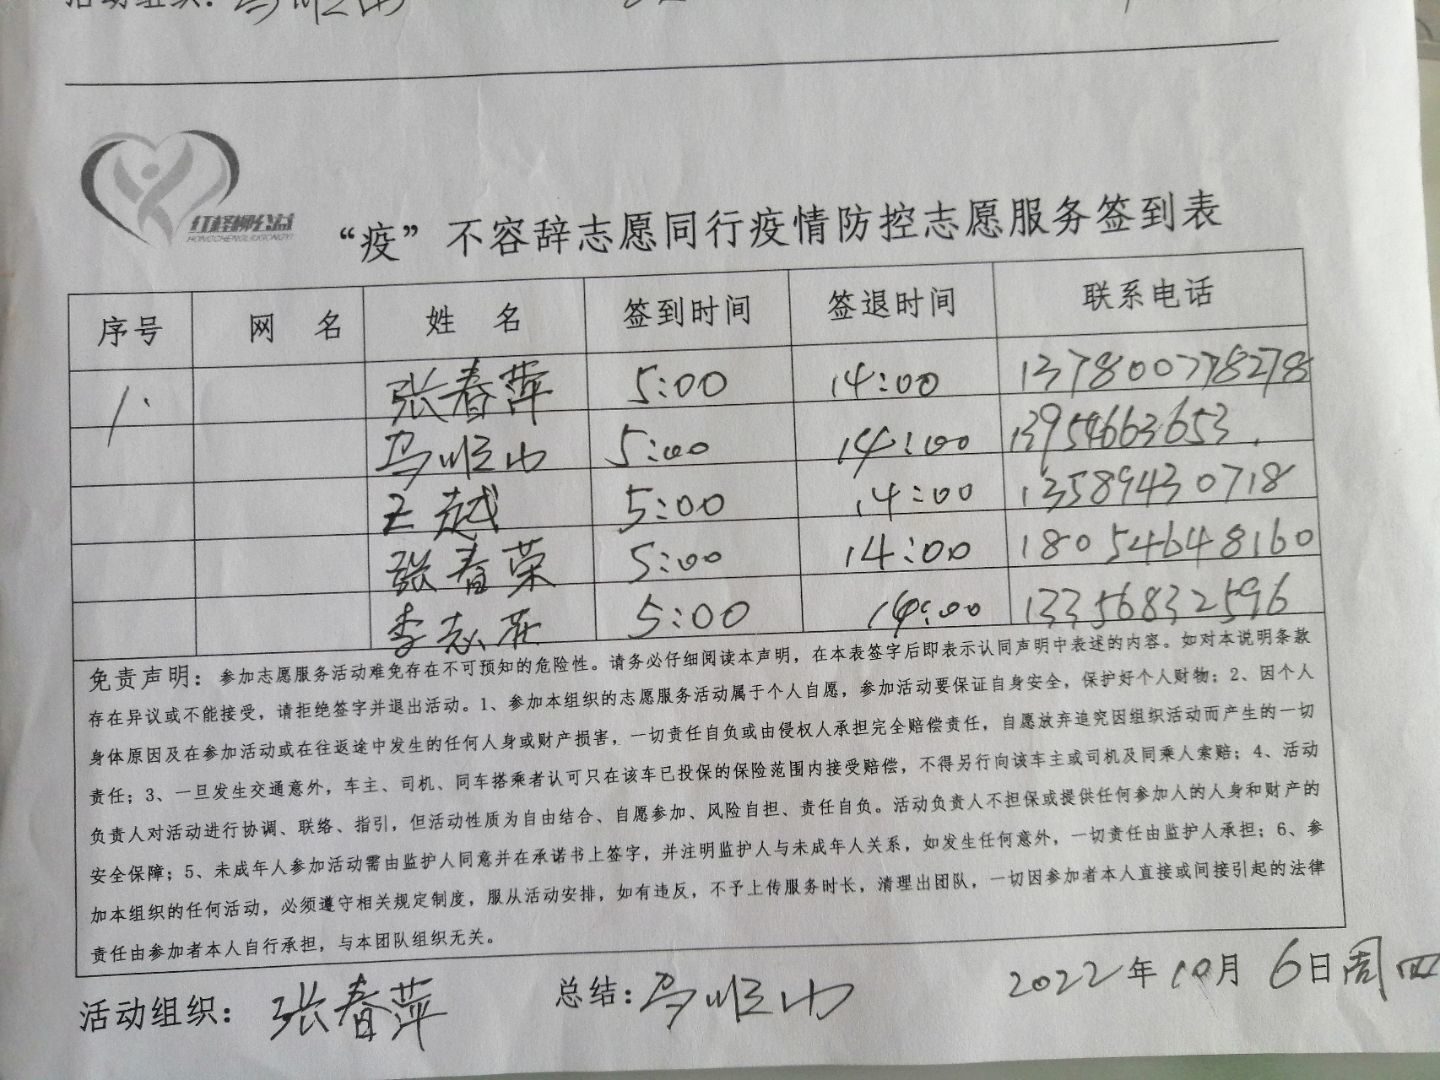 活动组织：马顺山
红柽柳公益
HONGCHENGLIUGONGYI
“疫”不容辞志愿同行疫情防控志愿服务签到表
序号 网 名 姓 名 签到时间 签退时间 联系电话
1. 张春萍 5:00 14:00
马顺山 5:00 14:00 13954663653.
王越 5:00 14:00 13589430718
张春荣 5:00 14:00 18054648160
李志萍 5:00 14:00 13356832596
免责声明：参加志愿服务活动难免存在不可预知的危险性。请务必仔细阅读本声明，在本表签字后即表示认同声明中表述的内容。如对本说明条款
存在异议或不能接受，请拒绝签字并退出活动。1、参加本组织的志愿服务活动属于个人自愿，参加活动要保证自身安全，保护好个人财物；2、因个人
身体原因及在参加活动或在往返途中发生的任何人身或财产损害，一切责任自负或由侵权人承担完全赔偿责任，自愿放弃追究因组织活动而产生的一切
责任；3、一旦发生交通意外，车主、司机、同车搭乘者认可只在该车已投保的保险范围内接受赔偿，不得另行向该车主或司机及同乘人索赔；4、活动
负责人对活动进行协调、联络、指引，但活动性质为自由结合、自愿参加、风险自担、责任自负。活动负责人不担保或提供任何参加人的人身和财产的
安全保障；5、未成年人参加活动需由监护人同意并在承诺书上签字，并注明监护人与未成年人关系，如发生任何意外，一切责任由监护人承担；6、参
加本组织的任何活动，必须遵守相关规定制度，服从活动安排，如有违反，不予上传服务时长，清理出团队，一切因参加者本人直接或间接引起的法律
责任由参加者本人自行承担，与本团队组织无关。
活动组织：张春萍 总结：马顺山 2022年10月6日周四